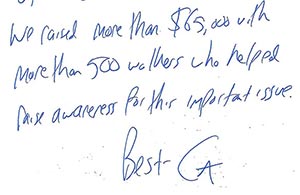 We raised more than $65,000 with
more than 500 walkers who helped
raise awareness for this important issue.
Best- CA